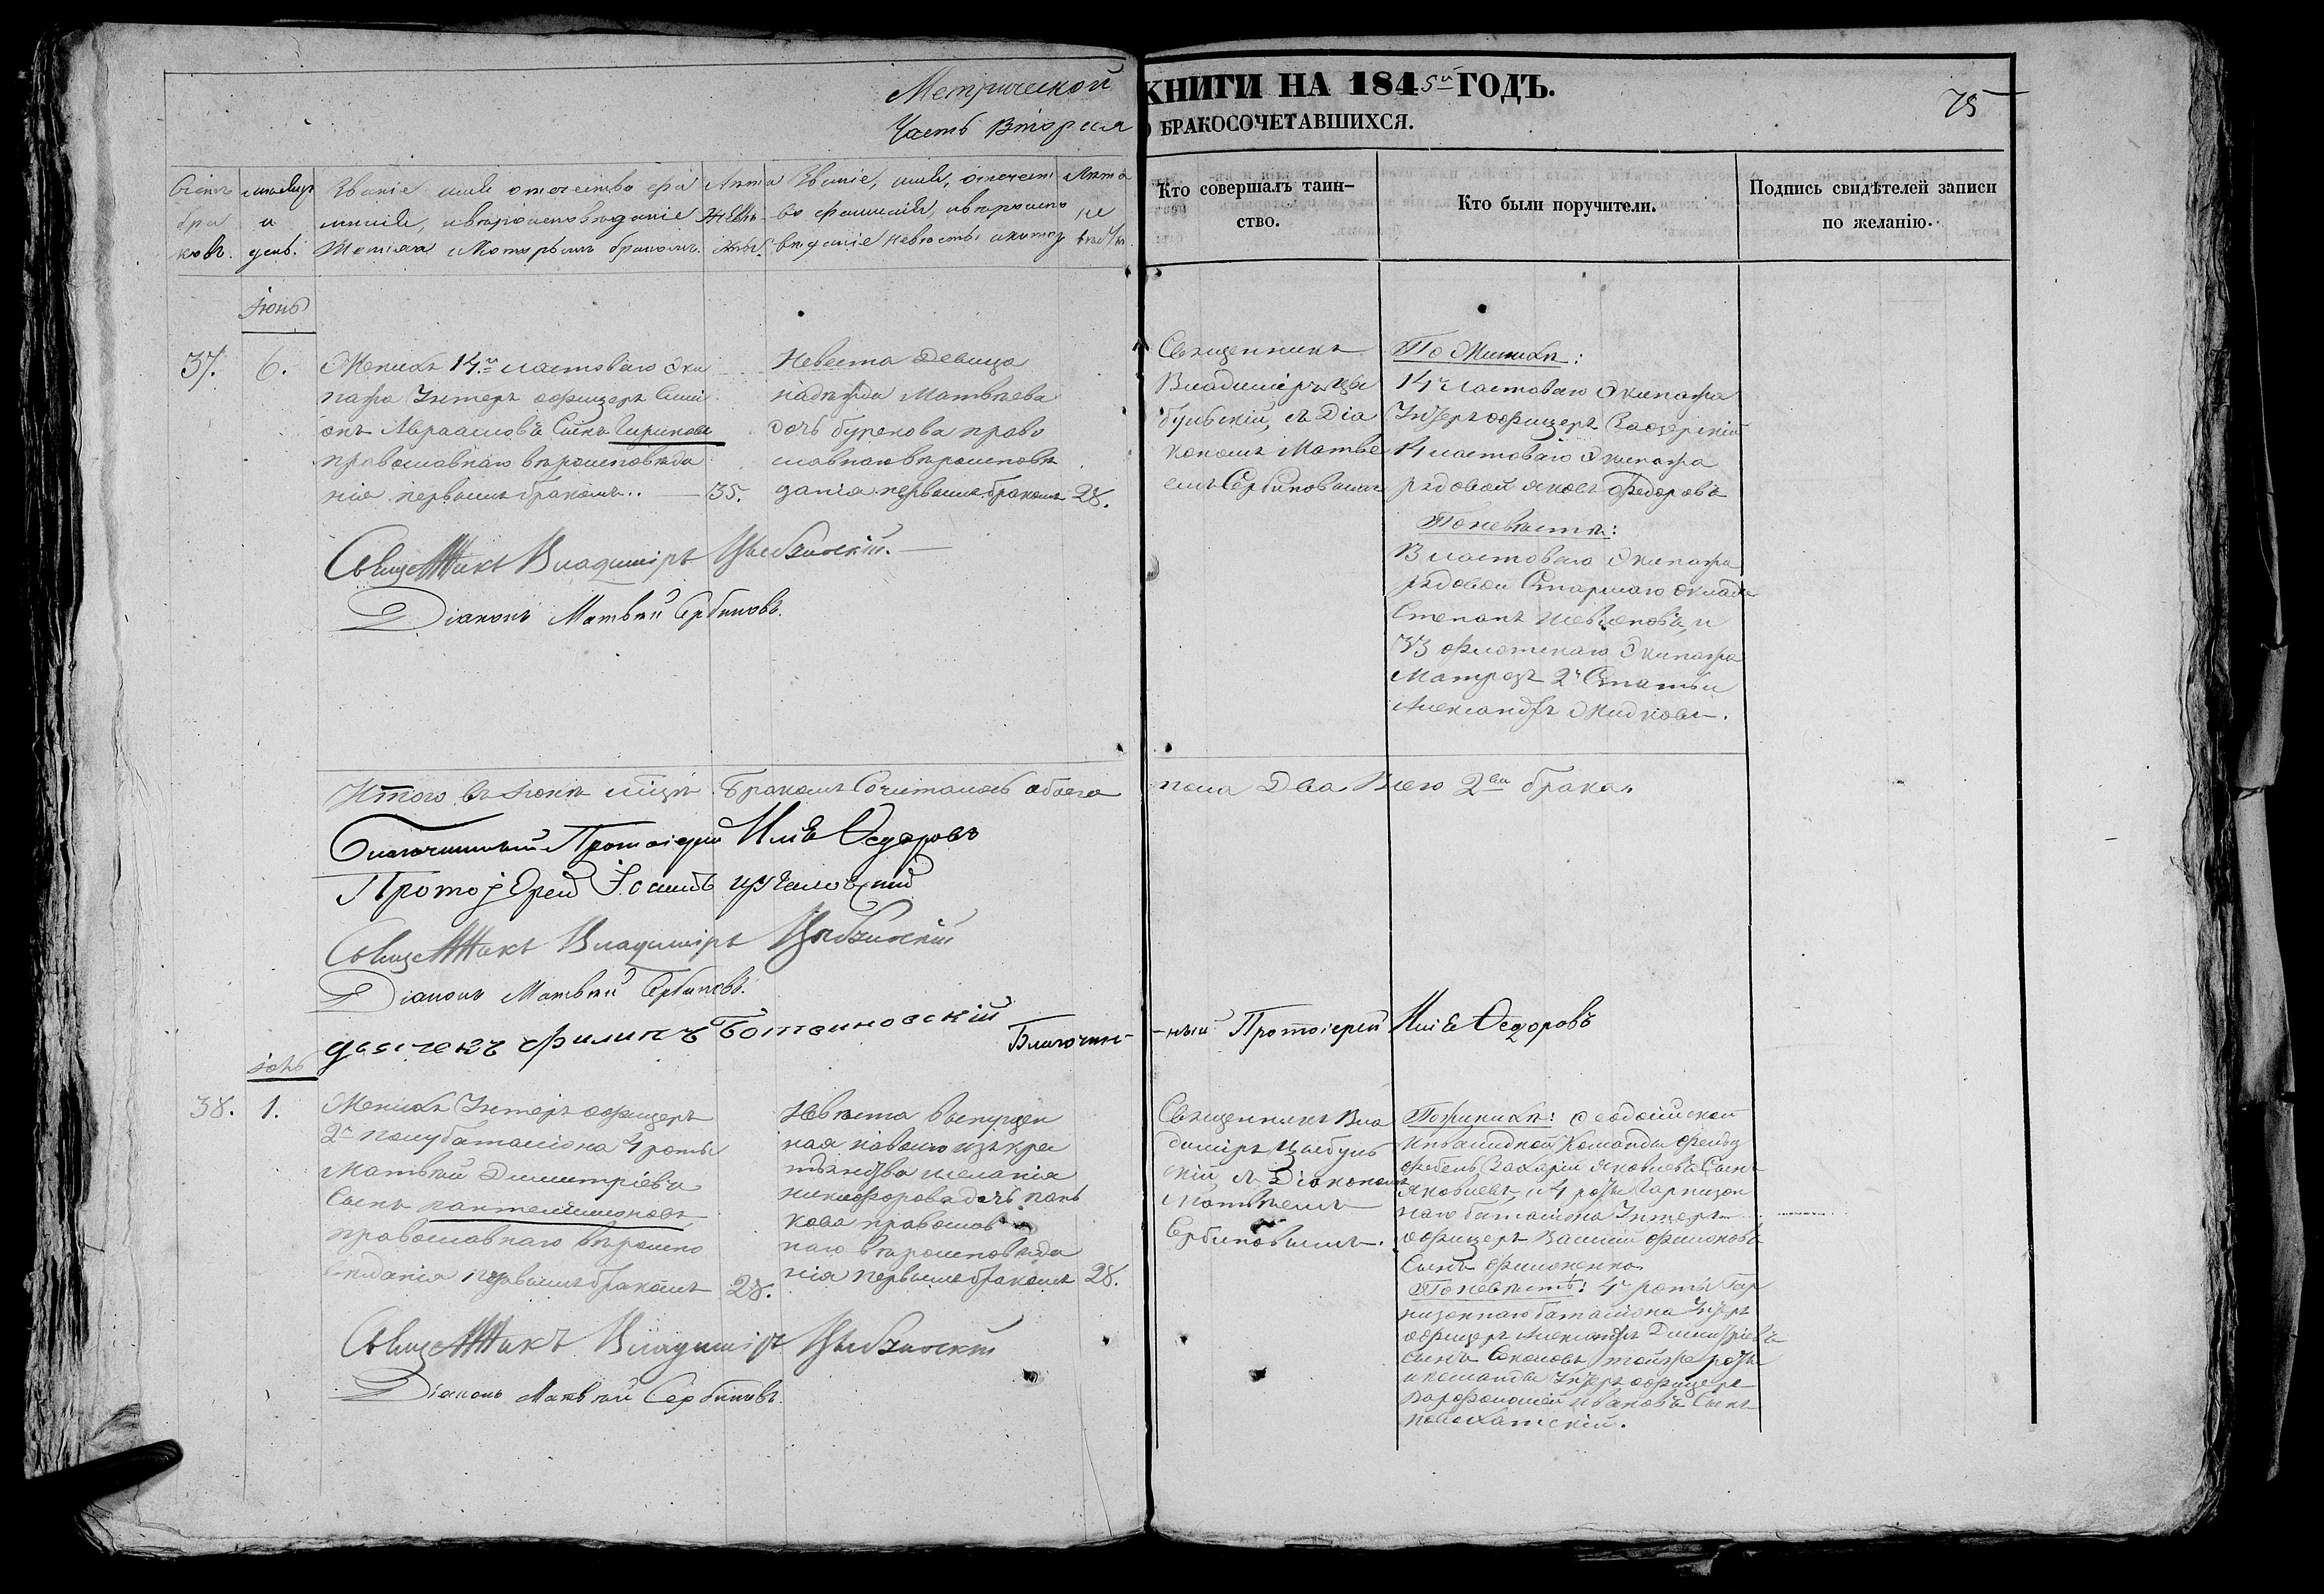 Метрической
Часть Вторая
КНИГИ НА 1845й ГОДЪ.
О БРАКОСОЧЕТАВШИХСЯ.
75
Счетъ бра ковъ.
месяцъ и день.
Званіе имя отечество фа
миліе, и вероисповѣданіе
Жениха и которымъ бракомъ.
Лѣта Жени хов.
Званіе, имя, отечест
во фамиліе, и вероиспо
веданіе невесты и котор
Лѣта не вѣсты
Кто совершалъ таин-
ство.
Кто были поручители.
Подпись свидѣтелей записи
по желанію.
Іюнь
37.
6.
Женихъ 14й ластоваго Эки
пажа Унтеръ офицеръ Сими
онъ Авраамовъ Сынъ
православнаго вѣроисповѣда
нія первымъ бракомъ..
35.
Невеста девица
надѣжда Матвѣева
дочь бурекова право
славнаго вѣроисповѣ
данія первымъ бракомъ
28.
Священникъ
Владиміръ Цы
бульскій, съ Діа
кономъ Матве
емъ Сербиновымъ
По Жениху:
14й ластоваго Экипажа
Унтеръ офицеръ
14 ластоваго Экипажа
рядовой яковъ Федоровъ
По невѣсте:
13 ластоваго Экипажа
рядовой Старшаго оклада
Степанъ и
33 флотскаго Экипажа
Матрозъ 2й Статьи
Александръ Жидковъ.
Священникъ Владиміръ Цыбульскій.
Діаконъ Матвѣй Сербиновъ.
Итого въ Іюнѣ мѣсяцѣ Бракомъ Сочеталось обоего пола Два Всего 2ва брака.
Благочинный Протоіерей Илія Ѳедоровъ
Протоіерей Іосифъ
Священникъ Владиміръ Цыбульскій
Діаконъ Матвѣй Сербиновъ.
дьячекъ Филипъ Ботвиновскій
Благочин-
-ный Протоіерей Илія Ѳедоровъ
іюль
38.
1.
Женихъ Унтеръ офицеръ
2й полубаталіона 4 роты
Матвѣй Димитріевъ
Сынъ пантелимоновъ
православнаго вѣроиспо
вѣданія первымъ бракомъ
28.
Невѣста выпущен
ная на волю изъ кре
постнова меланія
никифорова дочь пань
кова православ
наго вѣроисповѣда
нія первымъ бракомъ
28.
Священникъ Вла
диміръ Цыбуль
скій, съ Діакономъ
Матвѣемъ
Сербиновымъ.
По жениху: Ѳеодосійской
Инвалидной Команды фельд
фебель Захарій яковлевъ Сынъ
яковлевъ, и 4 роты Гарнизон
наго баталіона Унтеръ
офицеръ Василій Филиповъ
Сынъ
По невѣсте: 4й роты Гар
низоннаго баталіона Унтеръ
офицеръ Александръ Димитріевъ
Сынъ Соколовъ, тойже роты
и команды Унтеръ офицеръ
Варфоломей Ивановъ Сынъ
Священникъ Владиміръ Цыбульскій
Діаконъ Матвѣй Сербиновъ.